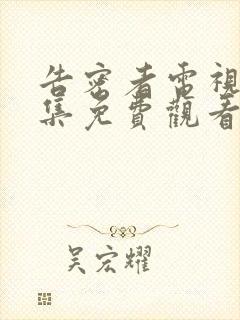 告密者電視
集免費觀看
吴宏耀